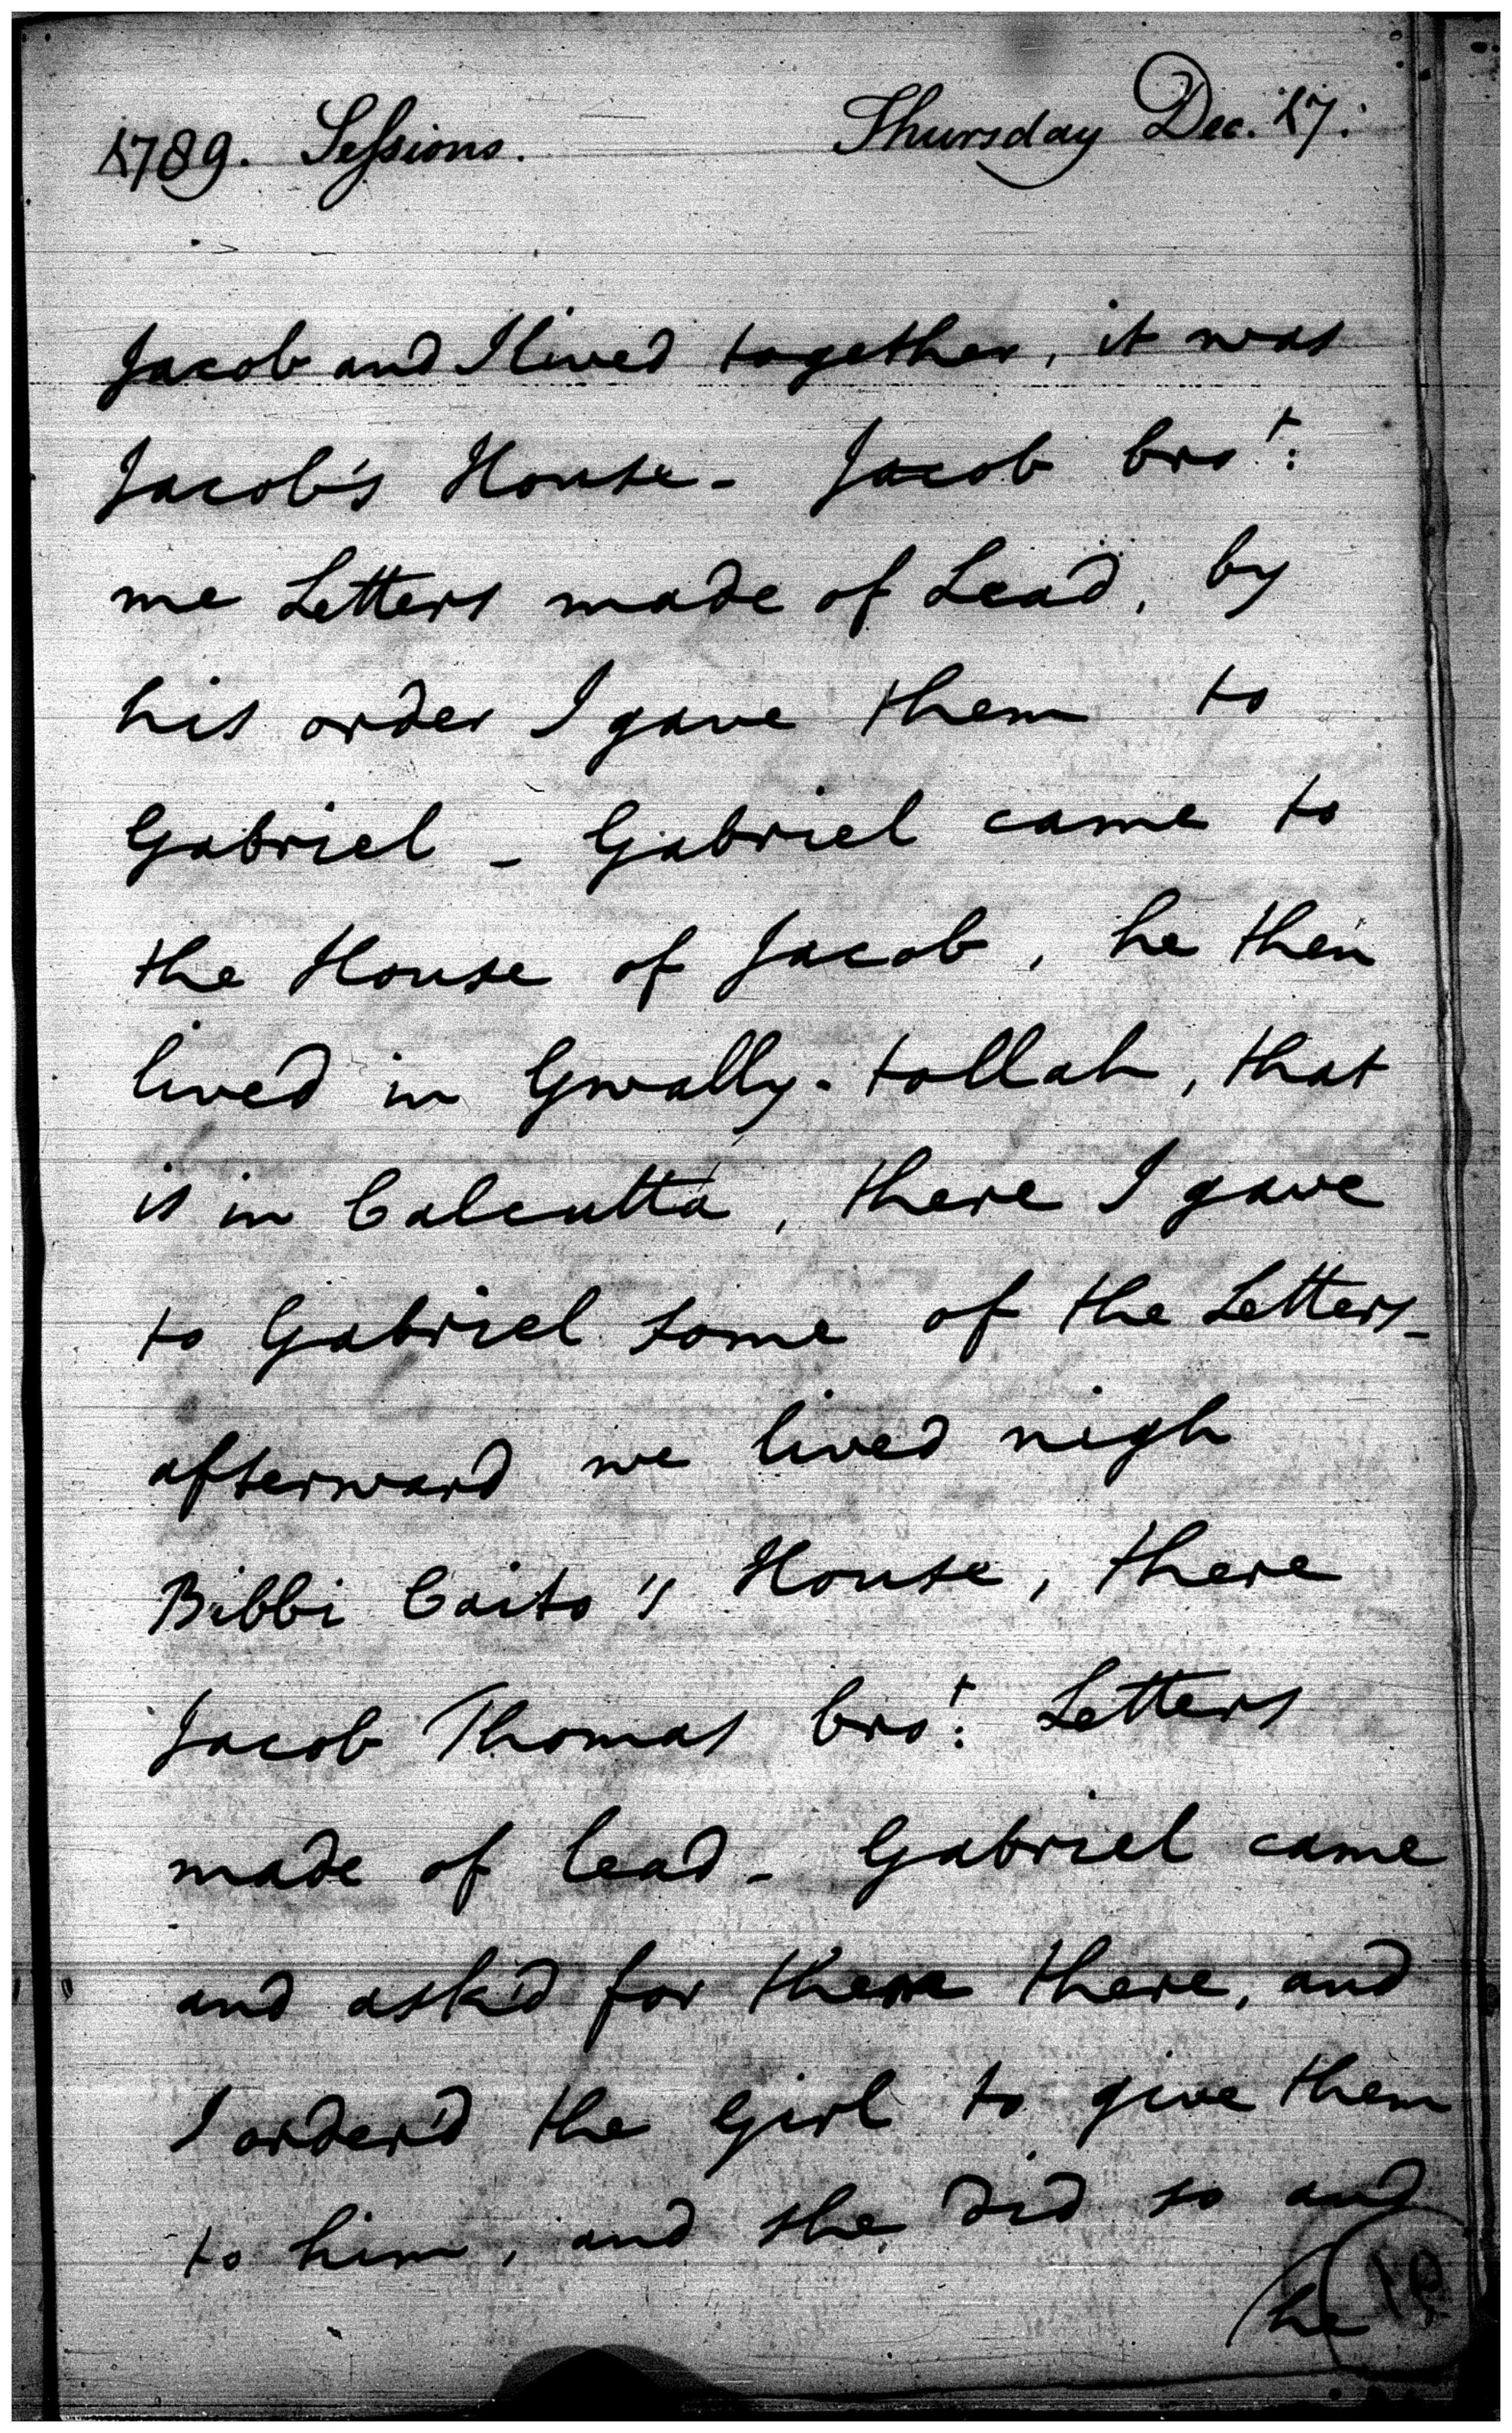 1789. Sessions. Thursday Dec. 17.
Jacob and I lived together, it was
Jacob's House - Jacob bro:t
me Letters made of Lead, by
his order I gave them to
Gabriel - Gabriel came to
the House of Jacob, he then
lived in Gwally-tollah, that
is in Calcutta, there I gave
to Gabriel some of the Letters -
afterward we lived nigh
Bibbi Caito's House, there
Jacob Thomas bro:t Letters
made of lead - Gabriel came
and ask'd for them there, and
I order'd the Girl to give them
to him, and she did so and
he